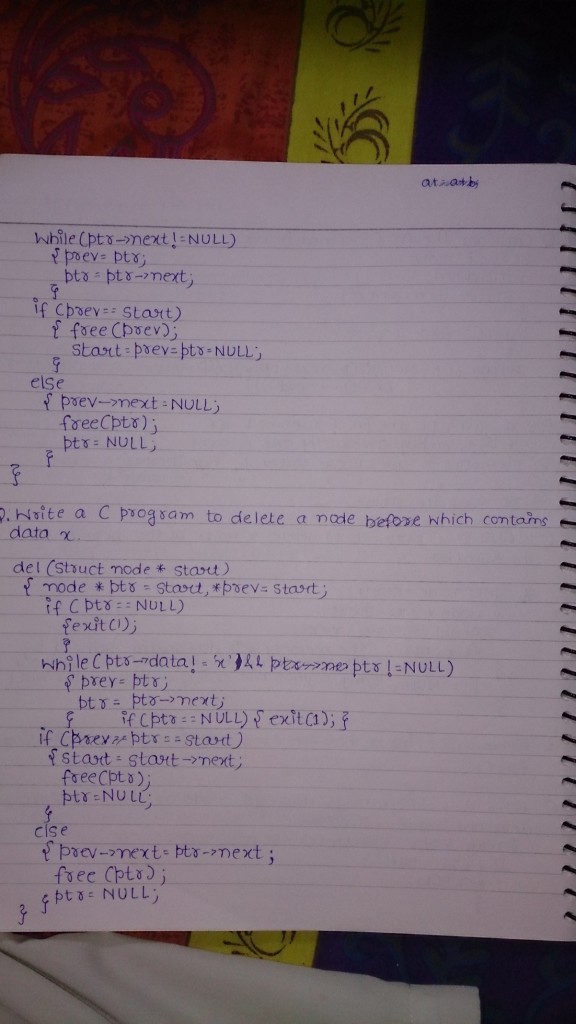 while(ptr->next!=NULL)
{ prev= ptr;
ptr = ptr->next;
}
if (prev== start)
{ free (prev);
start=prev=ptr=NULL;
}
else
{ prev->next=NULL;
free(ptr);
ptr= NULL;
}
}
Q. Write a C program to delete a node before which contains
data x.
del (struct node * start)
{ node * ptr = start, *prev= start;
if ( ptr==NULL)
{exit(1);
}
while( ptr->data! = 'x' && ptr!=NULL)
{ prev= ptr;
ptr= ptr->next;
} if (ptr==NULL) { exit(1); }
if (ptr==start)
{ start= start->next;
free(ptr);
ptr=NULL;
}
else
{ prev->next= ptr->next ;
free (ptr);
} ptr= NULL;
}